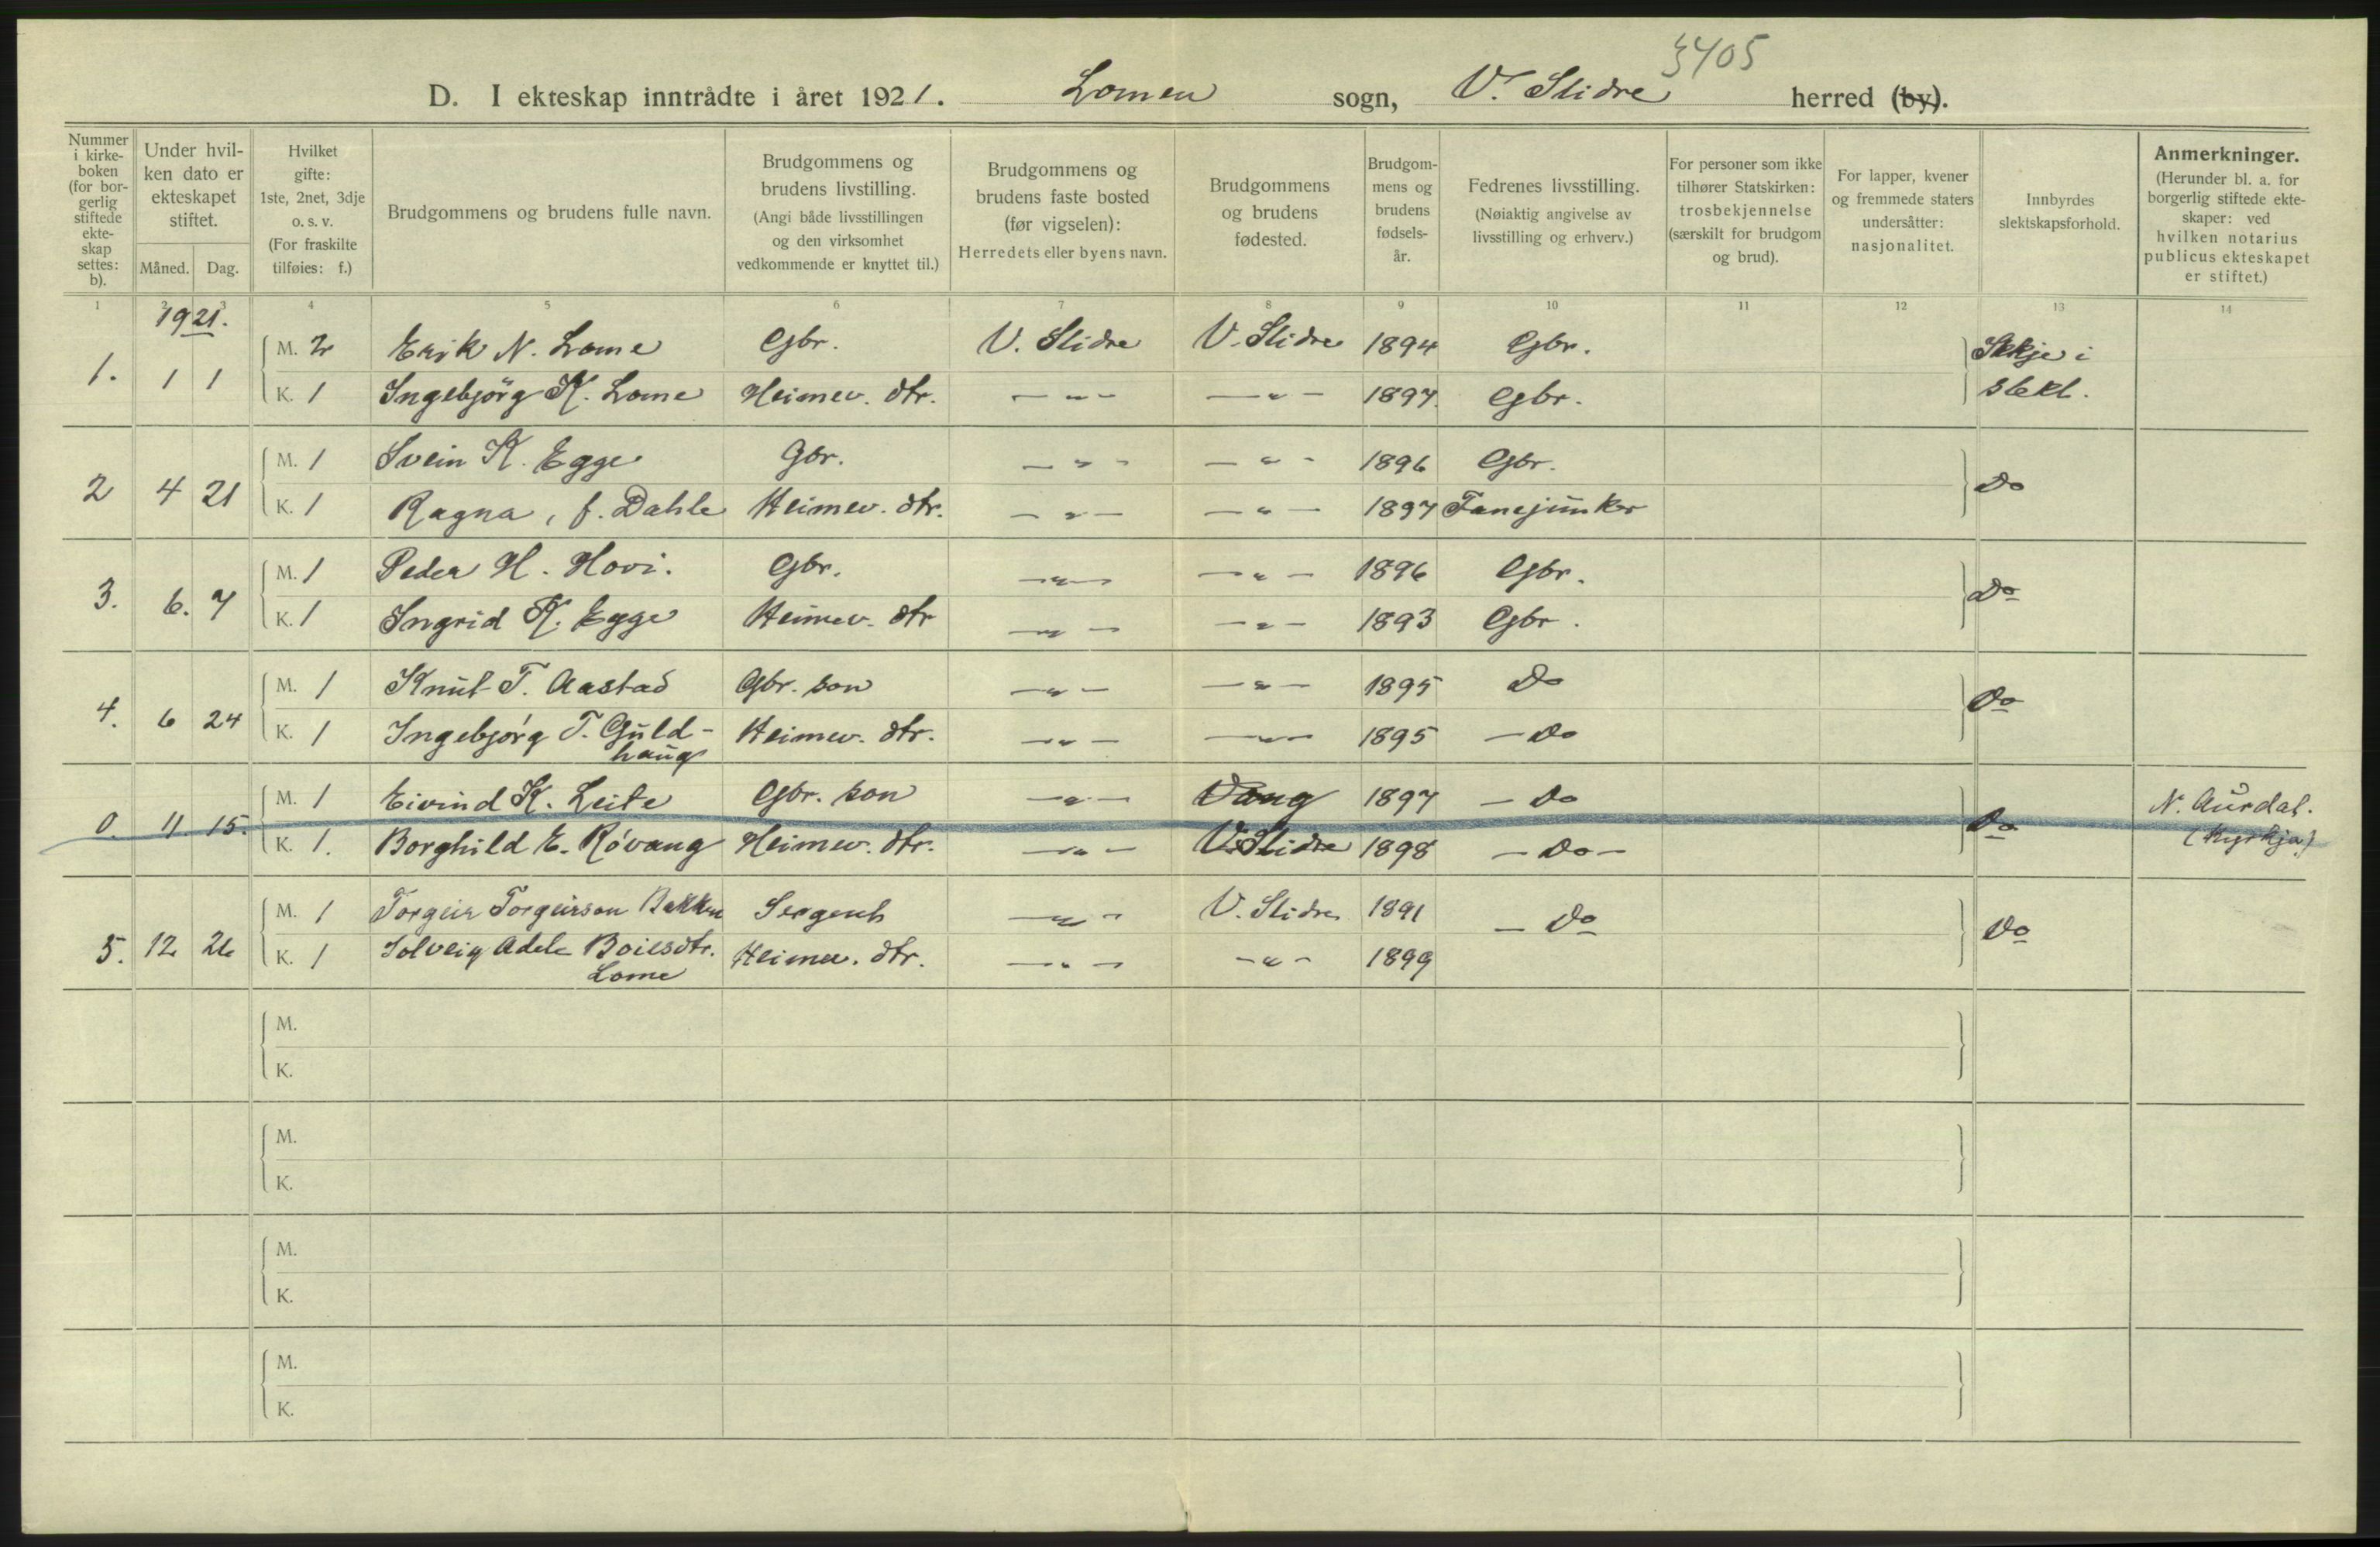 3405
D. I ekteskap inntrådte i året 1921. Lomen sogn, V. Slidre herred (by).
Nummer i kirkeboken (for borgerlig stiftede ekteskap settes: b).
Under hvilken dato er ekteskapet stiftet.
Måned. Dag.
Hvilket gifte: 1ste, 2net, 3dje o. s. v. (For fraskilte tilføies: f.)
Brudgommens og brudens fulle navn.
Brudgommens og brudens livstilling. (Angi både livsstillingen og den virksomhet vedkommende er knyttet til.)
Brudgommens og brudens faste bosted (før vigselen): Herredets eller byens navn.
Brudgommens og brudens fødested.
Brudgommens og brudens fødselsår.
Fedrenes livsstilling. (Nøiaktig angivelse av livsstilling og erhverv.)
For personer som ikke tilhører Statskirken: trosbekjennelse (særskilt for brudgom og brud).
For lapper, kvener og fremmede staters undersåtter: nasjonalitet.
Innbyrdes slektskapsforhold.
Anmerkninger. (Herunder bl. a. for borgerlig stiftede ekteskaper: ved hvilken notarius publicus ekteskapet er stiftet.)
1 2 3 4 5 6 7 8 9 10 11 12 13 14
1921.
1. 1 1 M. 2 Erik N. Lome Gbr. V. Slidre V. Slidre 1894 Gbr. Ikkje i
K. 1 Ingebjörg K. Lome Heimev. dtr. — " — — " — 1897. Gbr. slekt.
2 4 21 M. 1 Svein K. Egge Gbr. — " — — " — 1896 Gbr. Do
K. 1 Ragna, f. Dahle Heimev. dtr. — " — — " — 1897 Fanejunker
3. 6. 7 M. 1 Peder H. Hovi. Gbr. — " — — " — 1896 Gbr. Do
K. 1 Ingrid K. Egge Heimev. dtr — " — — " — 1893 Gbr.
4. 6 24 M. 1 Knut T. Aastad Gbr. son — " — — " — 1895 Do Do
K. 1 Ingebjórg T. Guldhaug Heimev. dtr. — " — — " — 1895 — Do
0. 11. 15. M. 1 Eivind K. Leite Gbr. son — " — Vang 1897 — Do Do N. Aurdal.
K. 1. Borghild E. Róvang Heimev. dtr. — " — V. Slidre 1898 — Do — (Kyrkja)
5. 12 26 M. 1 Torgeir Torgeirson Bakken Sergent — " — V. Slidre 1891 — Do Do
K. 1 Solveig Adele Boiesdtr. Lome Heimev. dtr. — " — — " — 1899
M.
K.
M.
K.
M.
K.
M.
K.